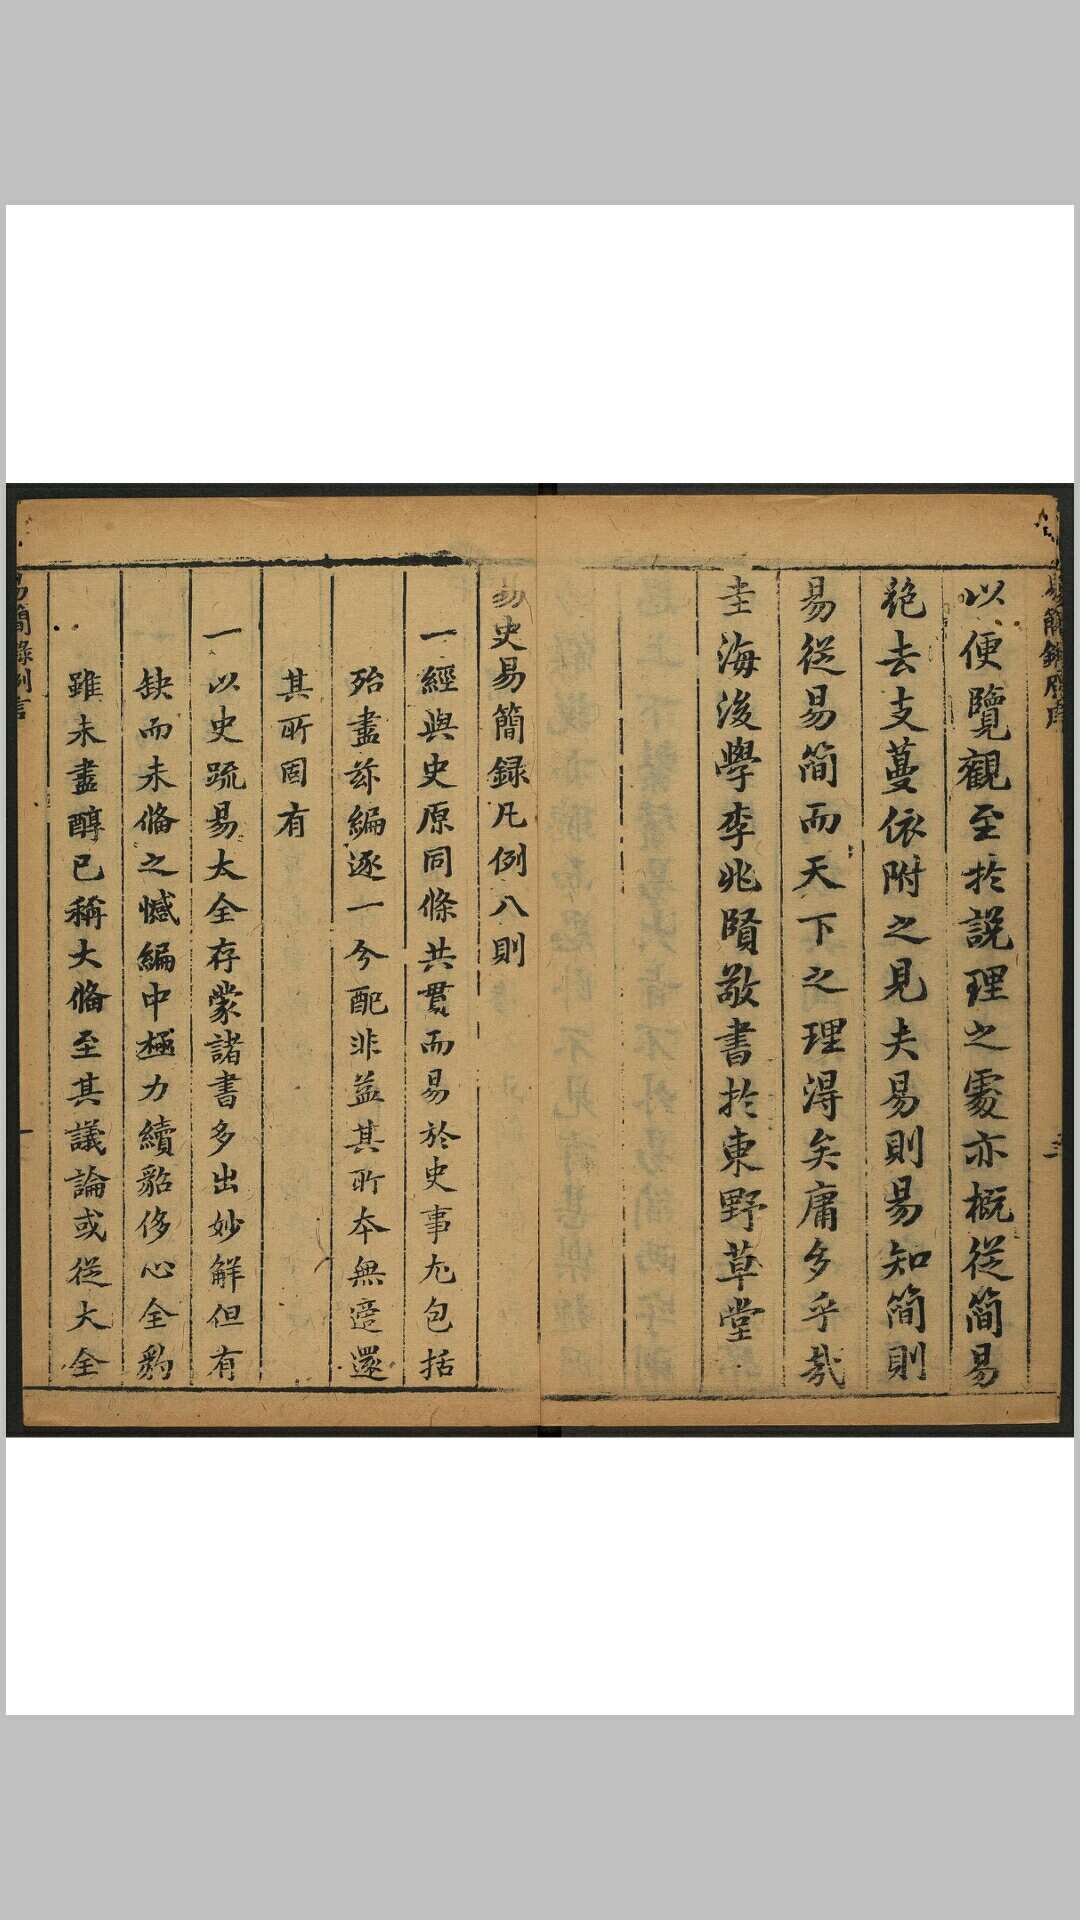 以便覽觀至於說理之處亦概從簡易
絕去支蔓依附之見夫易則易知簡則
易從易簡而天下之理得矣庸多乎哉
圭海後學李兆賢敬書於東野草堂
易史易簡録凡例八則
一經與史原同條共貫而易於史事尤包括
殆盡茲編逐一分配非益其所本無適還
其所固有
一以史疏易大全存蒙諸書多出妙解但有
缺而未俻之憾編中極力續貂侈心全豹
雖未盡醇已稱大俻至其議論或從大全